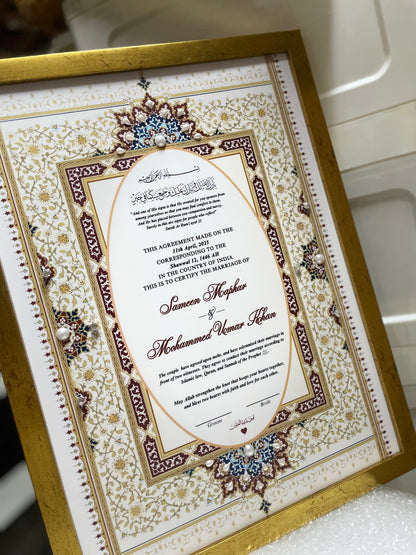 "And one of His signs is that He created for you spouses
from among yourselves so that you may find comfort in them.
And He has placed between you compassion and mercy.
Surely in this are signs for people who reflect"
Surah Ar Rum ( ayat 21
THIS AGREEMENT MADE ON THE
11th April, 2025
CORRESPONDING TO THE
Shawwal 12, 1446 AH
IN THE COUNTRY OF INDIA
THIS IS TO CERTIFY THE MARRIAGE OF
Sameen Maphar
&
Mohammed Uzmar Khan
The couple have agreed upon mahr, and have solemnized their marriage in
front of two witnesses. They agree to conduct their marriage according to
Islamic law, Quran, and Sunnah of the Prophet ﷺ.
May Allah strengthen the knot that keeps your hearts together,
and bless two hearts with faith and love for each other.
Groom
Bride